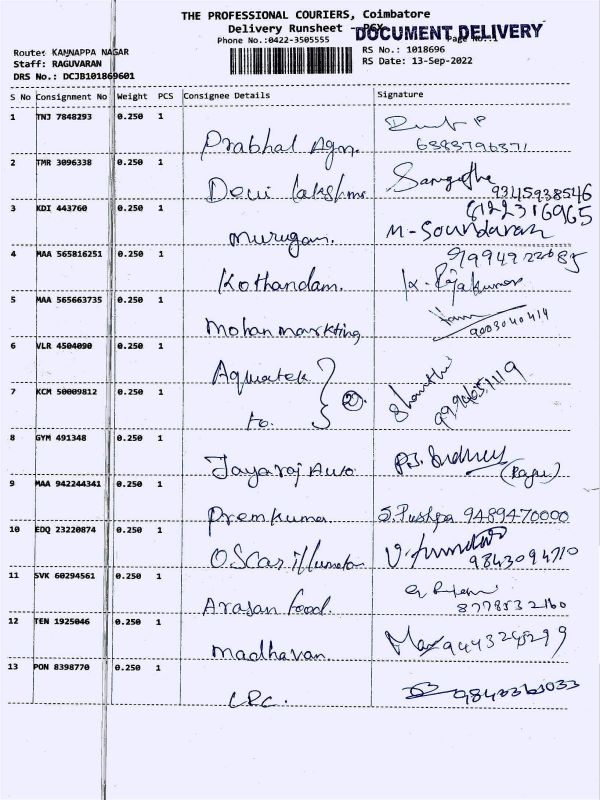 THE PROFESSIONAL COURIERS, Coimbatore
Delivery Runsheet - PCX
DOCUMENT DELIVERY
Phone No.:0422-3505555
Page No.:1
Route: KANNAPPA NAGAR
RS No.: 1018696
Staff: RAGUVARAN
RS Date: 13-Sep-2022
DRS No.: DCJB101869601
S No Consignment No Weight PCS Consignee Details Signature
1 TNJ 7848293 0.250 1
Prabhal Agn.
6383796371
2 TMR 3096338 0.250 1
Devi lakshmi Sangeetha
9345938546
3 KDI 443760 0.250 1 6122316965
murugan. M-Soundaran
4 MAA 565816251 0.250 1
Kothandam. K. Rajakumar
5 MAA 565663735 0.250 1
Mohan markting 9003040414
6 VLR 4504090 0.250 1
Aquatek
2 Shanthi
7 KCM 50009812 0.250 1
to.
8 GYM 491348 0.250 1
Jayaraj Auto (Raju)
9 MAA 942244341 0.250 1
Premkumar S.Pushpa 9489470000
10 EDQ 23220874 0.250 1
OScar 9843094710
11 SVK 60294561 0.250 1
Arasan food. 8778532160
12 TEN 1925046 0.250 1
madhavan 9443248299
13 PON 8398770 0.250 1